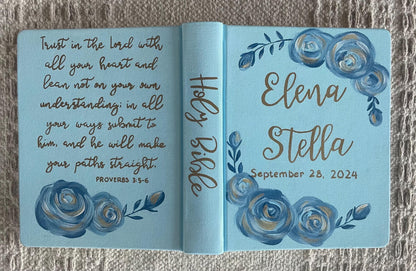 Trust in the Lord with
all your heart and
lean not on your own
understanding; in all
your ways submit to
him, and he will make
your paths straight.
PROVERBS 3:5-6
Holy Bible
Elena
Stella
September 28, 2024